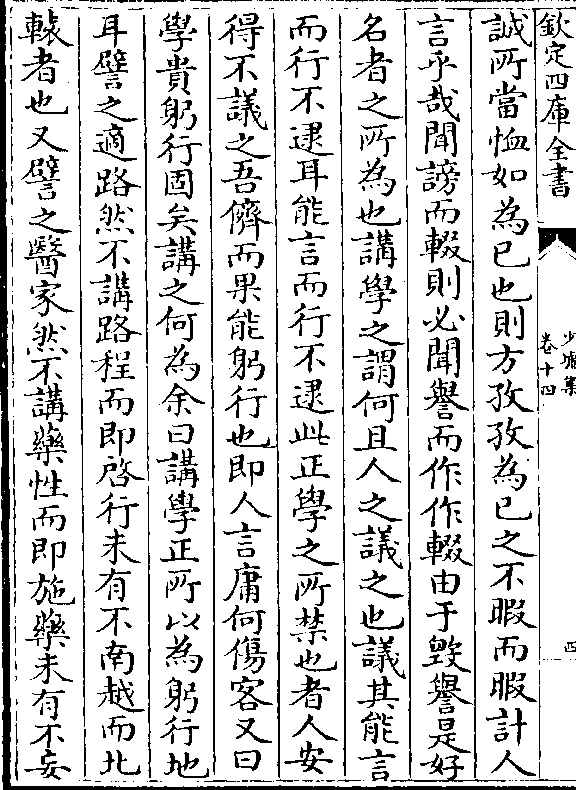 欽定四庫全書
少墟集
卷十四
四
誠所當恤如為已也則方孜孜為已之不暇而暇計人
言乎哉聞謗而輟則必聞譽而作作輟由于毀譽是好
名者之所為也講學之謂何且人之議之也議其能言
而行不逮耳能言而行不逮此正學之所禁也者人安
得不議之吾儕而果能躬行也即人言庸何傷客又曰
學貴躬行固矣講之何為余曰講學正所以為躬行地
耳譬之適路然不講路程而即啓行未有不南越而北
轅者也又譬之醫家然不講藥性而即施藥未有不妄